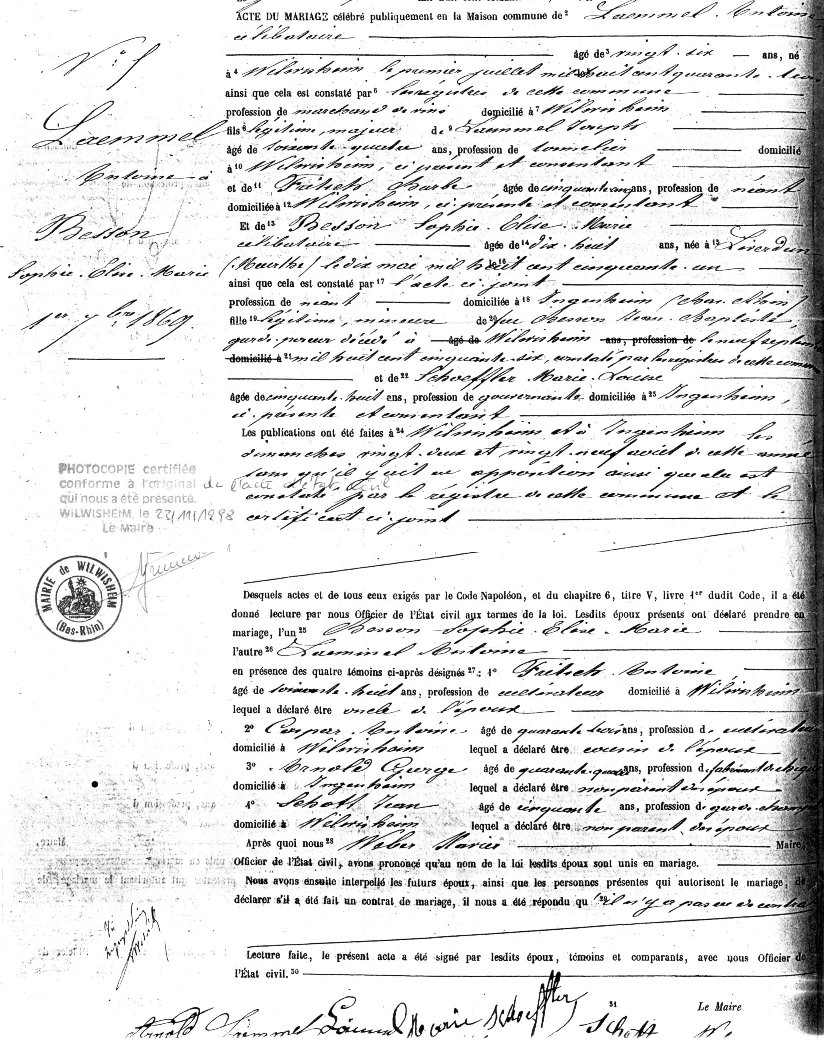 ACTE DU MARIAGE célébré publiquement en la Maison commune de² Laemmel Antoine
célibataire âgé de³ vingt six ans, né
N° 5
à⁴ Wilwisheim le premier juillet mil huit cent quarante trois
ainsi que cela est constaté par⁶ les registres de cette commune
profession de marchand de vins domicilié à⁷ Wilwisheim
Laemmel
fils⁸ légitime, majeur de⁹ Laemmel Joseph
âgé de soixante quatre ans, profession de tonnelier domicilié
à¹⁰ Wilwisheim, ci présent et consentant
Antoine à
et de¹¹ Fritsch Barbe âgée de cinquante ans, profession de néant
domiciliée à¹² Wilwisheim, ci présente et consentant
Besson
Et de¹³ Besson Sophie Elise Marie
célibataire âgée de¹⁴ dix huit ans, née à¹⁵ Liverdun
Sophie Elise Marie
(Meurthe) le dix mai mil huit cent cinquante un
ainsi que cela est constaté par¹⁷ l'acte ci joint
1er 7bre 1869.
profession de néant domiciliée à¹⁸ Ingenheim (Bas Rhin)
fille¹⁹ légitime, mineure de²⁰ feu Besson Jean Baptiste,
décédé à âgé de Wilwisheim ans, profession de le neuf septembre
domicilié à²¹ mil huit cent cinquante six, constaté par les registres de cette commune
et de²² Schoeffler Marie Louise
âgée de cinquante huit ans, profession de gouvernante domiciliée à²³ Ingenheim,
ci présente et consentant
Les publications ont été faites à²⁴ Wilwisheim et à Ingenheim les
dimanches vingt deux et vingt neuf août de cette année
sans qu'il y ait eu opposition ainsi que cela est
constaté par le registre de cette commune et le
certificat ci joint
PHOTOCOPIE certifiée
conforme à l'original de l'acte d'état civil
qui nous a été présenté.
WILWISHEIM, le 23/11/1998
Le Maire
MAIRIE de WILWISHEIM
(Bas-Rhin)
Desquels actes et de tous ceux exigés par le Code Napoléon, et du chapitre 6, titre V, livre 1er dudit Code, il a été
donné lecture par nous Officier de l'État civil aux termes de la loi. Lesdits époux présents ont déclaré prendre en
mariage, l'un²⁵ Besson Sophie Elise Marie
l'autre²⁶ Laemmel Antoine
en présence des quatre témoins ci-après désignés²⁷: 1° Fritsch Antoine
âgé de soixante huit ans, profession de cultivateur domicilié à Wilwisheim
lequel a déclaré être oncle de l'époux
2° Caspar Antoine âgé de quarante ans, profession de cultivateur
domicilié à Wilwisheim lequel a déclaré être cousin de l'époux
3° Arnold George âgé de quarante quatre ans, profession de fabricant de
domicilié à Ingenheim lequel a déclaré être non parent des époux
4° Schott Jean âgé de cinquante ans, profession de garde champ
domicilié à Wilwisheim lequel a déclaré être non parent des époux
Après quoi nous²⁸ Weber Maire,
Officier de l'État civil, avons prononcé qu'au nom de la loi lesdits époux sont unis en mariage.
Nous avons ensuite interpellé les futurs époux, ainsi que les personnes présentes qui autorisent le mariage, de
déclarer s'il a été fait un contrat de mariage, il nous a été répondu qu'²⁹ il n'y a pas eu de contrat
Lecture faite, le présent acte a été signé par lesdits époux, témoins et comparants, avec nous Officier de
l'État civil.³⁰
³¹ Le Maire
Arnold Laemmel Marie Schoeffler Schott